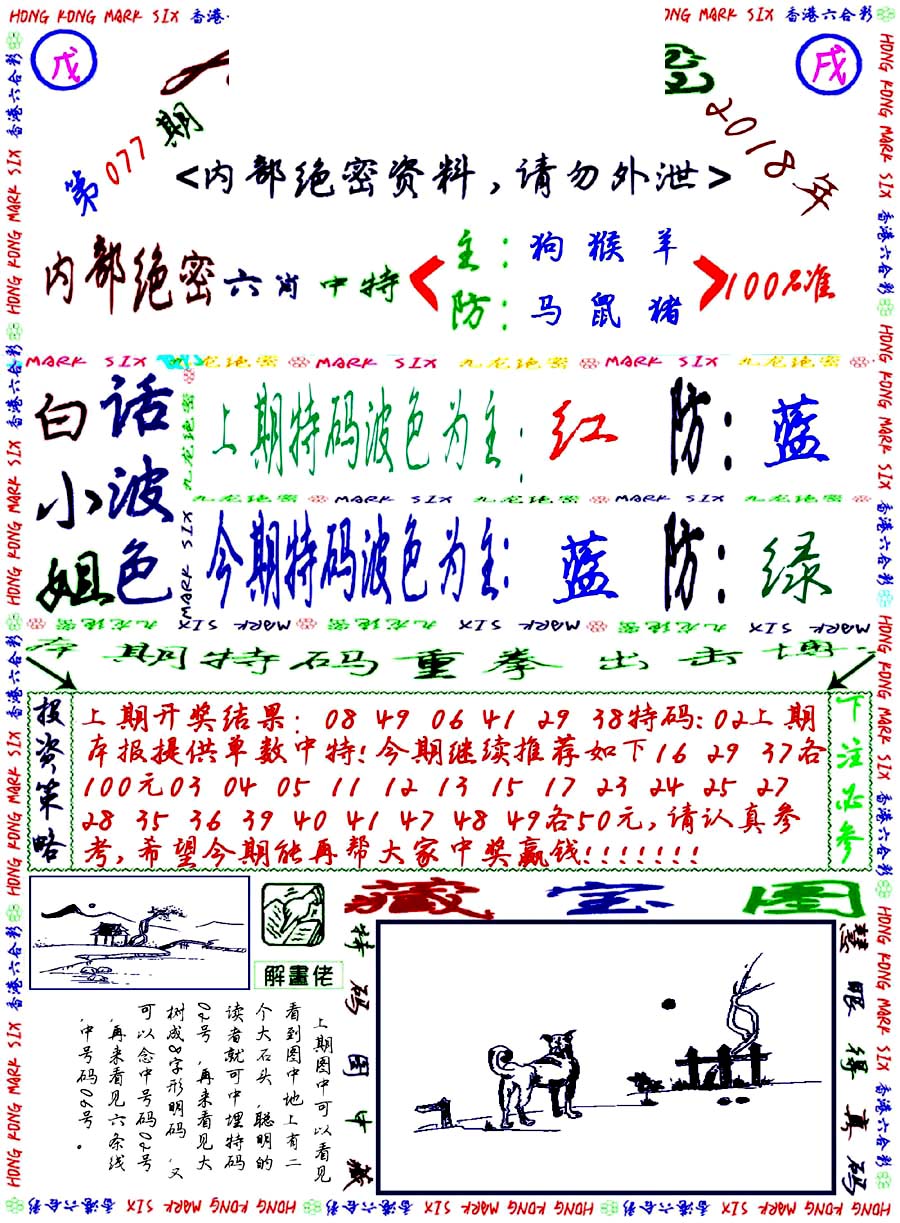 HONG KONG MARK SIX 香港
ONG MARK SIX 香港六合彩
戊
戌
第077期
2018年
<内部绝密资料,请勿外泄>
内部绝密六肖中特
主:狗猴羊
防:马鼠猪
100%准
MARK SIX 九龙绝密 MARK SIX 九龙绝密 MARK SIX 九龙绝密
白小姐
话波色
上期特码波色为主:红 防:蓝
九龙绝密 MARK SIX 九龙绝密 MARK SIX 九龙绝密
今期特码波色为主:蓝 防:绿
九龙绝密 MARK SIX 九龙绝密 MARK SIX 九龙绝密 MARK SIX
期特码重拳出击
投资策略
上期开奖结果: 08 49 06 41 29 38特码:02上期
本报提供单数中特!今期继续推荐如下16 29 37各
100元03 04 05 11 12 13 15 17 23 24 25 27
28 35 36 39 40 41 47 48 49各50元,请认真参
考,希望今期能再帮大家中奖赢钱!!!!!!!
下注必参
藏宝图
解畫佬
特码图中藏
慧眼得真码
上期图中可以看见
看到图中地上有二
个大石头,聪明的
读者就可中埋特码
02号,再来看见大
树成8字形明码,又
可以念中号码08号
,再来看见六条线
,中号码06号。
HONG KONG MARK SIX 香港六合彩